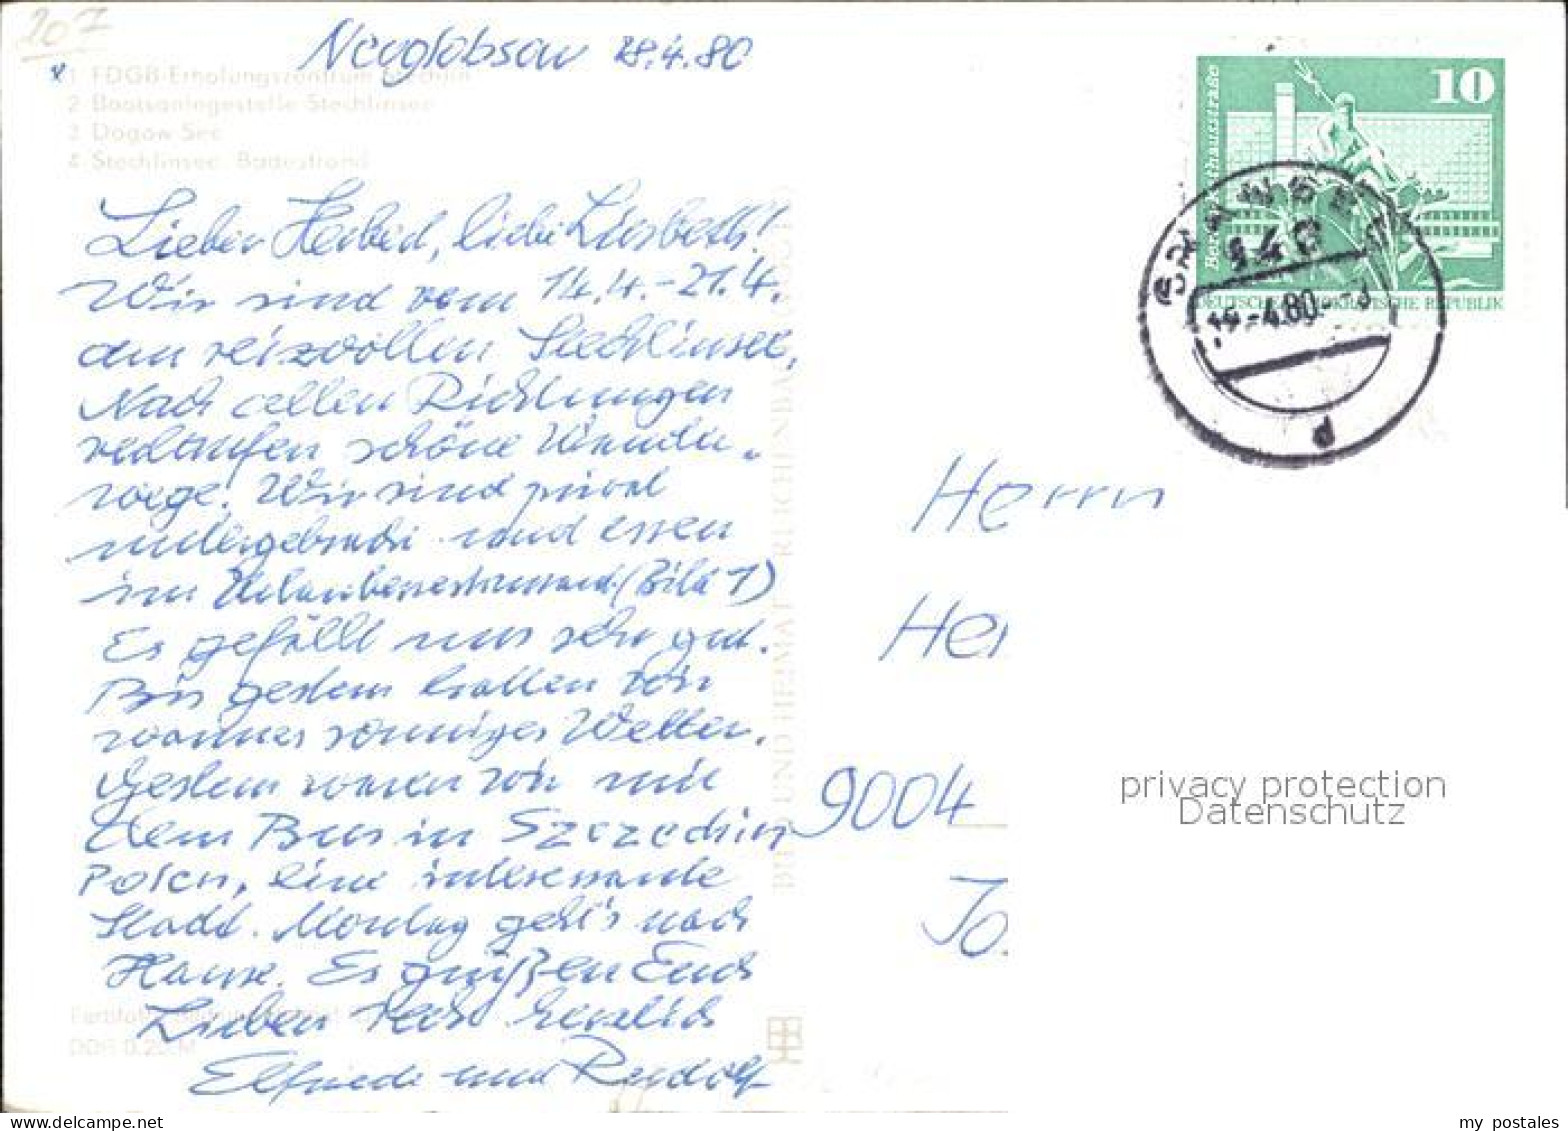 207
Neuglobsow 18.4.80
1 FDGB-Erholungszentrum Stechlin
2 Bootsanlegestelle Stechlinsee
3 Dagow See
4 Stechlinsee, Badestrand
Lieber Herbert, liebe Lisbeth!
Wir sind vom 14.4.-21.4.
am reizvollen Stechlinsee,
Nach allen Richtungen
verlaufen schöne Wander-
wege. Wir sind privat
untergebracht und essen
im Urlauberrestaurant (Bild 1)
Es gefällt uns sehr gut.
Bis gestern hatten wir
warmes sonniges Wetter.
Gestern waren wir mit
dem Bus in Szczecin
Polen, eine interessante
Stadt. Montag geht's nach
Hause. Es grüßen Euch
Lieben recht herzlich
Elfriede und Rudolf
BILD UND HEIMAT REICHENBACH (VOGTL)
DDR 0,20 M
10
Berlin, Rathausstraße
DEUTSCHE DEMOKRATISCHE REPUBLIK
GRANSEE
143
19.-4.80.
d
Herrn
Her
9004
privacy protection
Datenschutz
my postales